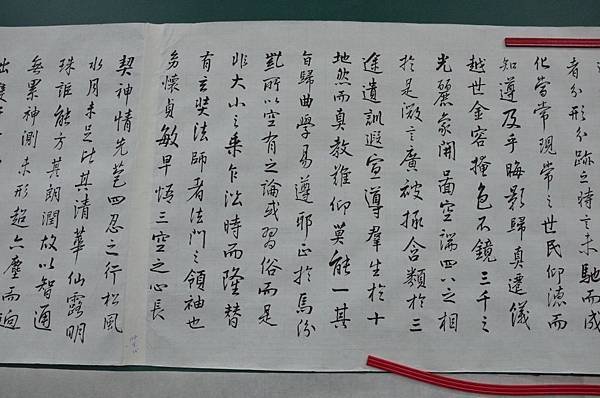 者分形分跡之時言未馳而成
化當常現常之世民仰德而
知遵及乎晦影歸真遷儀
越世金容掩色不鏡三千之
光麗象開圖空端四八之相
於是微言廣被拯含類於三
途遺訓遐宣導羣生於十
地然而真教難仰莫能一其
旨歸曲學易遵邪正於焉紛
糺所以空有之論或習俗而是
非大小之乘乍沿時而隆替
有玄奘法師者法門之領袖也
幼懷貞敏早悟三空之心長
契神情先苞四忍之行松風
水月未足比其清華仙露明
珠詎能方其朗潤故以智通
無累神測未形超六塵而迥